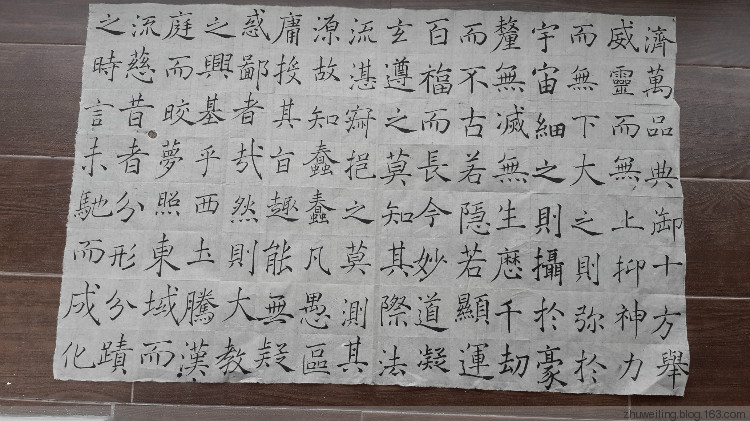 濟萬品典御十方舉
威靈而無上抑神力
而無下大之則弥於
宇宙細之則攝於豪
釐無滅無生歷千劫
而不古若隱若顯運
百福而長今妙道凝
玄遵之莫知其際法
流湛寂挹之莫測其
源故知蠢蠢凡愚區
庸投其旨趣能無疑
惑鄙者哉然則大教
之興基乎西土騰漢
庭而皎夢照東域而
流慈昔者分形分蹟
之時言未馳而成化
zhuweiling.blog.163.com